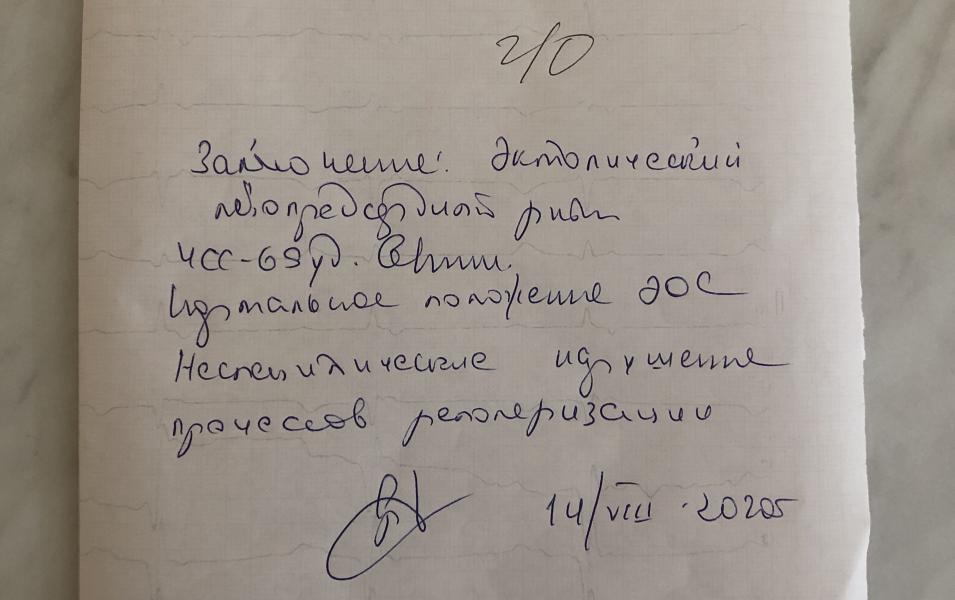 2/0
Заключение: Эктопический
левопредсердный ритм
ЧСС-69 уд. в мин.
Нормальное положение ЭОС
Неспецифические нарушение
процессов реполяризации
14/VIII·2020г